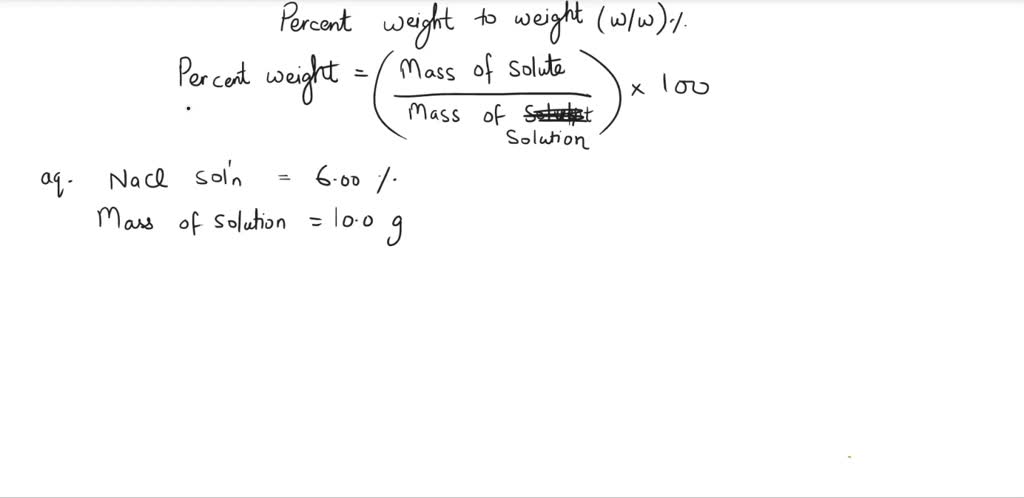 Percent weight to weight (w/w)%
Percent weight = (Mass of Solute / Mass of Solution) × 100
aq. NaCl sol'n = 6.00 %
Mass of solution = 10.0 g